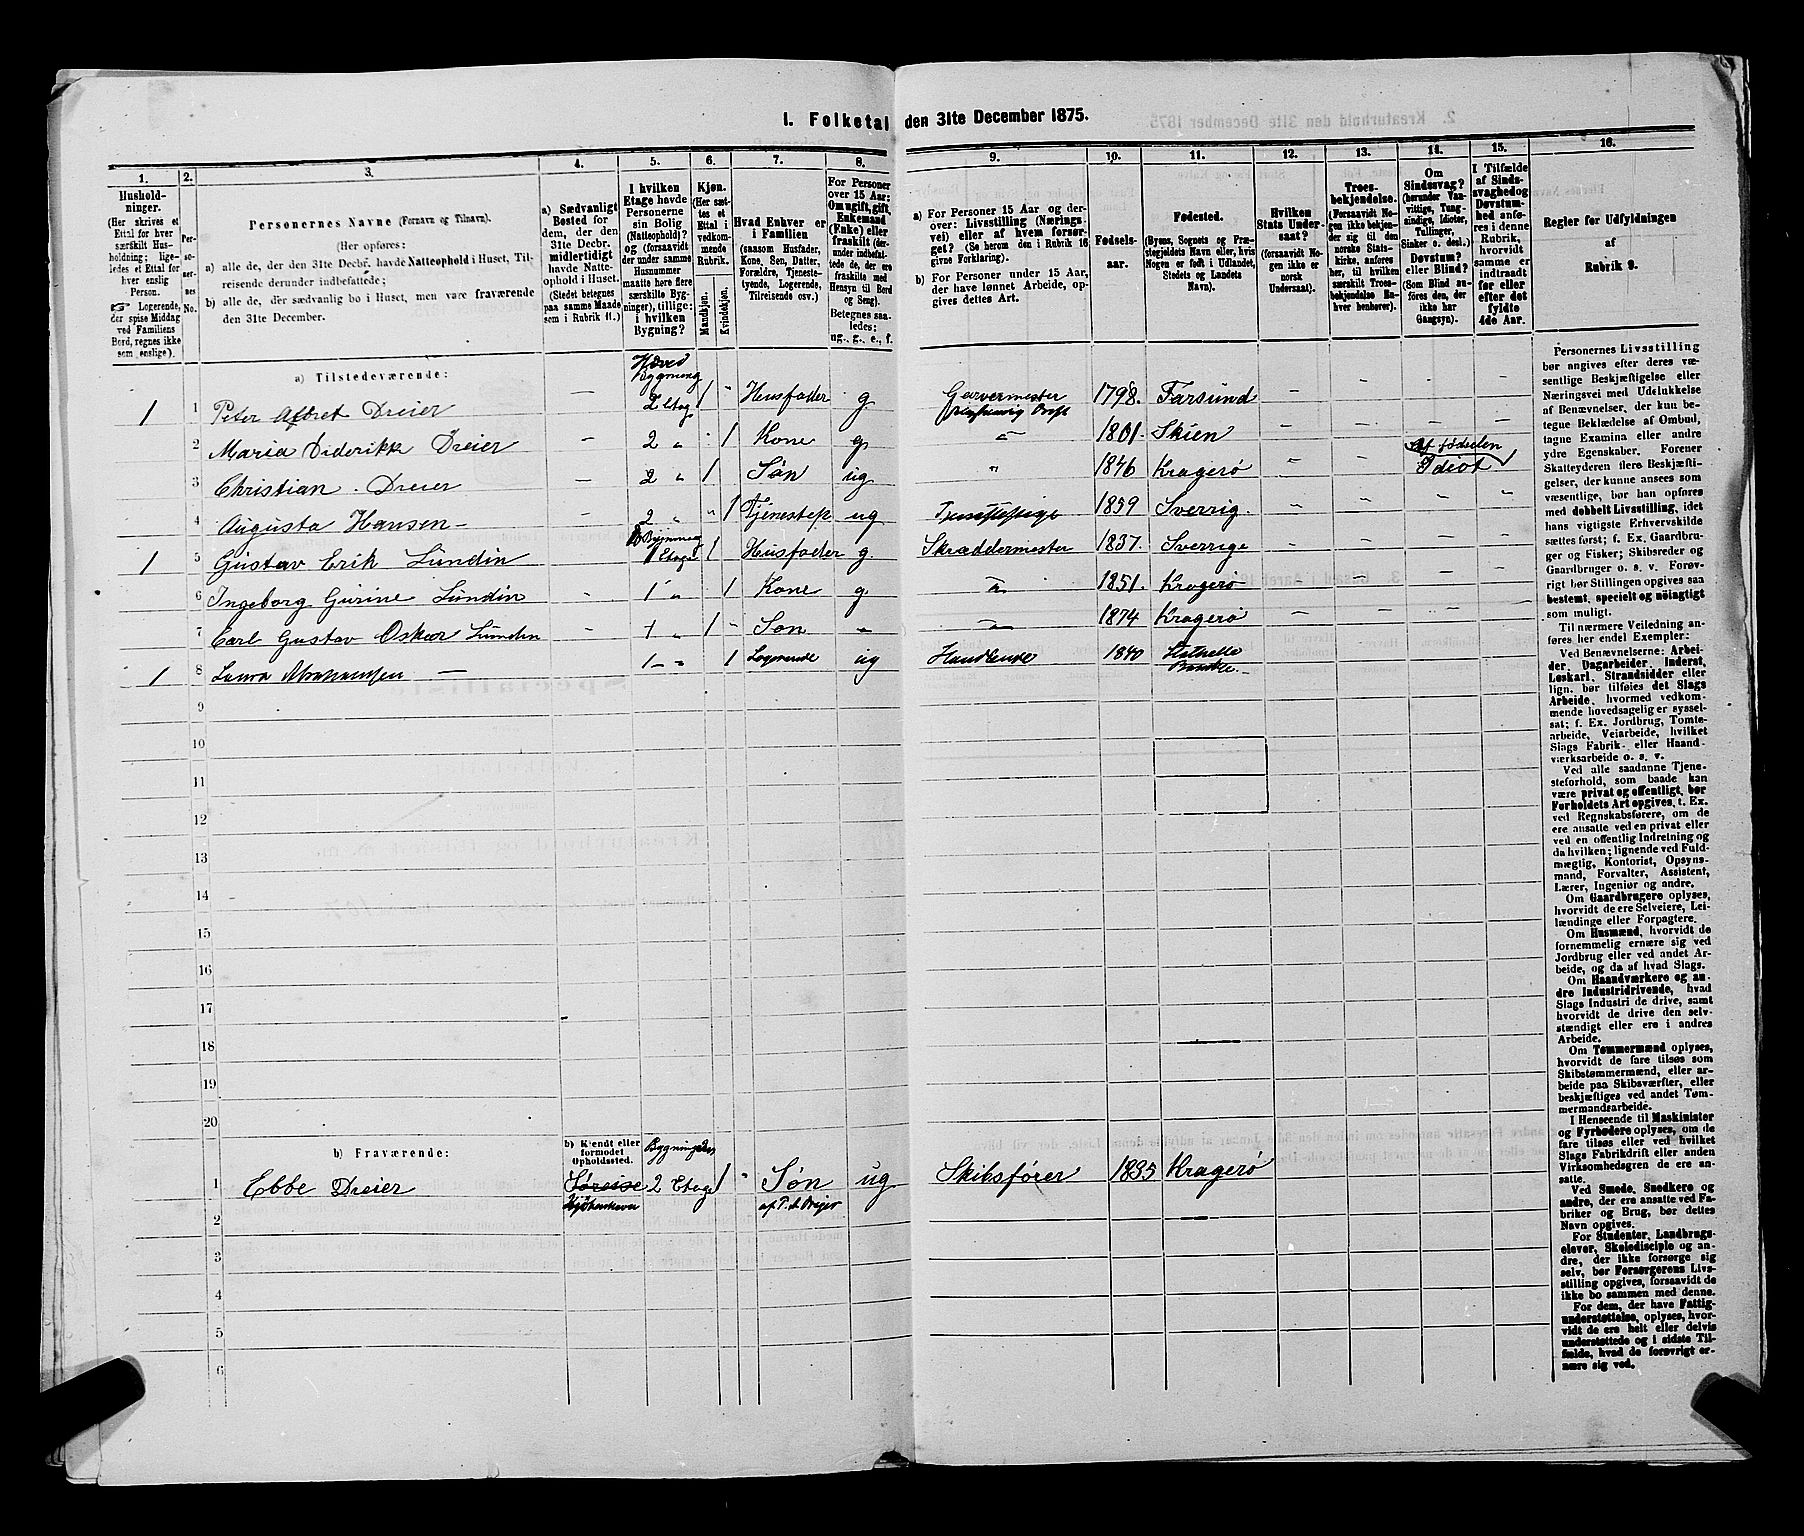 1. Folketal den 31te December 1875.
1.
2.
3.
4.
5.
6.
7.
8.
9.
10.
11.
12.
13.
14.
15.
16.
Hushold-
ninger.
(Her skrives et
Ettal for hver
særskilt Hus-
holdning; lige-
ledes et Ettal for
hver enslig
Person.
☞ Logerende,
der spise Middag
ved Familiens
Bord, regnes ikke
som enslige).
Per-
so-
ner-
nes
No.
Personernes Navne (Fornavn og Tilnavn).
(Her opføres:
a) alle de, der den 31te Decbr. havde Natteophold i Huset, Til-
reisende derunder indbefattede;
b) alle de, der sædvanlig bo i Huset, men vare fraværende
den 31te December.
a) Sædvanligt
Bosted for
dem, der den
31te Decbr.
midlertidigt
havde Natte-
ophold i Huset.
(Stedet betegnes
paa samme Maade
som i Rubrik 11.)
I hvilken
Etage havde
Personerne
sin Bolig
(Natteophold)?
og (forsaavidt
der under samme
Husnummer
maatte høre flere
særskilte Byg-
ninger), tillige:
i hvilken
Bygning?
Kjøn.
(Her sæt-
tes et
Ettal i
vedkom-
mende
Rubrik.
Mandkjøn.
Kvindekjøn.
Hvad Enhver er
i Familien
(saasom Husfader,
Kone, Søn, Datter,
Forældre, Tjeneste-
tyende, Logerende,
Tilreisende osv.)
For Personer
over 15 Aar:
Om ugift, gift,
Enkemand
(Enke) eller
fraskilt (der-
under indbefat-
tede de, der ere
fraskilte med
Hensyn til Bord
og Seng).
Betegnes saa-
ledes:
ug., g., e., f.
a) For Personer 15 Aar og der-
over: Livsstilling (Nærings-
vei) eller af hvem forsør-
get? (Se herom den i Rubrik 16
givne Forklaring).
b) For Personer under 15 Aar,
der have lønnet Arbeide, op-
gives dettes Art.
Fødsels-
aar.
Fødested.
(Byens, Sognets og Præ-
stegjeldets Navn eller, hvis
Nogen er født i Udlandet,
Stedets og Landets
Navn).
Hvilken
Stats Under-
saat?
(forsaavidt No-
gen ikke er
norsk
Undersaat).
Troes-
bekjendelse.
(Forsaavidt No-
gen ikke bekjen-
der sig til den
norske Stats-
kirke, anføres
her, til hvilken
særskilt Troes-
bekjendelse En-
hver henhører).
Om
Sindssvag?
(herunder Van-
vittige, Tung-
sindige, Idioter,
Tullinger,
Sinker o. desl.)
Døvstum?
eller Blind?
(Som Blind an-
føres den, der
ikke har
Gangsyn).
I Tilfælde
af Sinds-
svaghed og
Døvstum-
hed anfø-
res i denne
Rubrik,
hvorvidt
samme er
indtraadt
før eller
efter det
fyldte
4de Aar.
Regler for Udfyldningen
af
Rubrik 9.
a) Tilstedeværende:
Hoved
Bygning
1 1 Peter Albret Dreier — 2 Etag 1 " Husfader g Garvermester 1798. Farsund — — — —
2 Maria Diderikke Dreier — 2 " " 1 Kone g. " 1801. Skien — — —
Af fødselen
3 Christian Dreier — 2 " 1 Søn ug " 1846 Kragerø — — Idiot
4 Augusta Hansen — — 2 " " 1 Tjenestep ug Tjenestepige 1859 Sverrig. — — — —
1 5 Gustav Erik Lundin 1 Etage 1 Husfader g. Skræddermester 1837. Sverrige
6 Ingeborg Gurine Lundin — 1 " 1 Kone g " 1851. Kragerø
7 Carl Gustav Oskar Lundin — 1 " 1 " Søn — " 1874 Kragerø — — — —
1 8 Laura Abrahamsen — 1 — " 1 Logerende ug Handlende 1840 Stathelle
Bamble.
9
10
11
12
13
14
15
16
17
18
19
20
b) Fraværende:
b) Kjendt eller
formodet
Opholdssted.
1 Ebbe Dreier Søreise 2 Etage 1 " Søn ug Skibsfører 1835 Kragerø
Kjøbenhavn af P. A. Dreier
2
3
4
5
6
Personernes Livsstilling
bør angives efter deres væ-
sentlige Beskjæftigelse eller
Næringsvei med Udelukkelse
af Benævnelser, der kun be-
tegne Beklædelse af Ombud,
tagne Examina eller andre
ydre Egenskaber. Forener
Skatteyderen flere Beskjæfti-
gelser, der kunne ansees som
væsentlige, bør han opføres
med dobbelt Livsstilling, idet
hans vigtigste Erhvervskilde
sættes først; f. Ex. Gaardbru-
ger og Fisker; Skibsreder og
Gaardbruger o. s. v. Forøv-
rigt bør Stillingen opgives saa
bestemt, specielt og nøiagtigt
som muligt.
Til nærmere Veiledning an-
føres her endel Exempler:
Ved Benævnelserne: Arbei-
der, Dagarbeider, Inderst,
Løskarl, Strandsidder eller
lign. bør tilføies det Slags
Arbeide, hvormed vedkom-
mende hovedsagelig er syssel-
sat; f. Ex. Jordbrug, Tomte-
arbeide, Veiarbeide, hvilket
Slags Fabrik- eller Haand-
værksarbeide o. s. v.
Ved alle saadanne Tjene-
steforhold, som baade kan
være privat og offentligt, bør
Forholdets Art opgives, t. Ex.
ved Regnskabsførere, om de
ere ansatte ved en privat eller
ved en offentlig Indretning og
da hvilken; lignende ved Fuld-
mægtig, Kontorist, Opsyns-
mand, Forvalter, Assistent,
Lærer, Ingeniør og andre.
Om Gaardbrugere oplyses,
hvorvidt de ere Selveiere, Lei-
lændinge eller Forpagtere.
Om Husmænd, hvorvidt de
fornemmelig ernære sig ved
Jordbrug eller ved andet Ar-
beide, og da af hvad Slags.
Om Haandværkere og an-
dre Industridrivende, hvad
Slags Industri de drive, samt
hvorvidt de drive den selv-
stændigt eller ere i andres
Arbeide.
Om Tømmermænd oplyses,
hvorvidt de fare tilsøs som
Skibstømmermænd, eller ar-
beide paa Skibsværfter, eller
beskjæftiges ved andet Tøm-
mermandsarbeide.
I Henseende til Maskinister
og Fyrbødere oplyses, om de
fare tilsøs eller ved hvilket
Slags Fabrikdrift eller anden
Virksomhedsgren de ere an-
satte.
Ved Smede, Snedkere og
andre, der ere ansatte ved Fa-
briker og Brug, bør dettes
Navn opgives.
For Studenter, Landbrugs-
elever, Skoledisciple og an-
dre, der ikke forsørge sig
selv, bør Forsørgerens Livs-
stilling opgives, forsaavidt de
ikke bo sammen med denne.
For dem, der have Fattig-
understøttelse, oplyses, hvor-
vidt de ere helt eller delvis
understøttede og i sidste Til-
fælde, hvad de forøvrigt er-
nære sig ved.